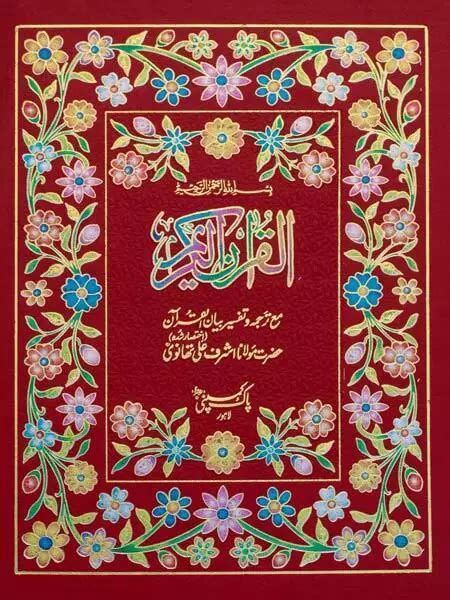 بسم اللہ الرحمن الرحیم
القرآن الکریم
مع ترجمہ و تفسیر بیان القرآن
(اختصار شدہ)
حضرت مولانا اشرف علی تھانوی
پاک کمپنی
لاہور